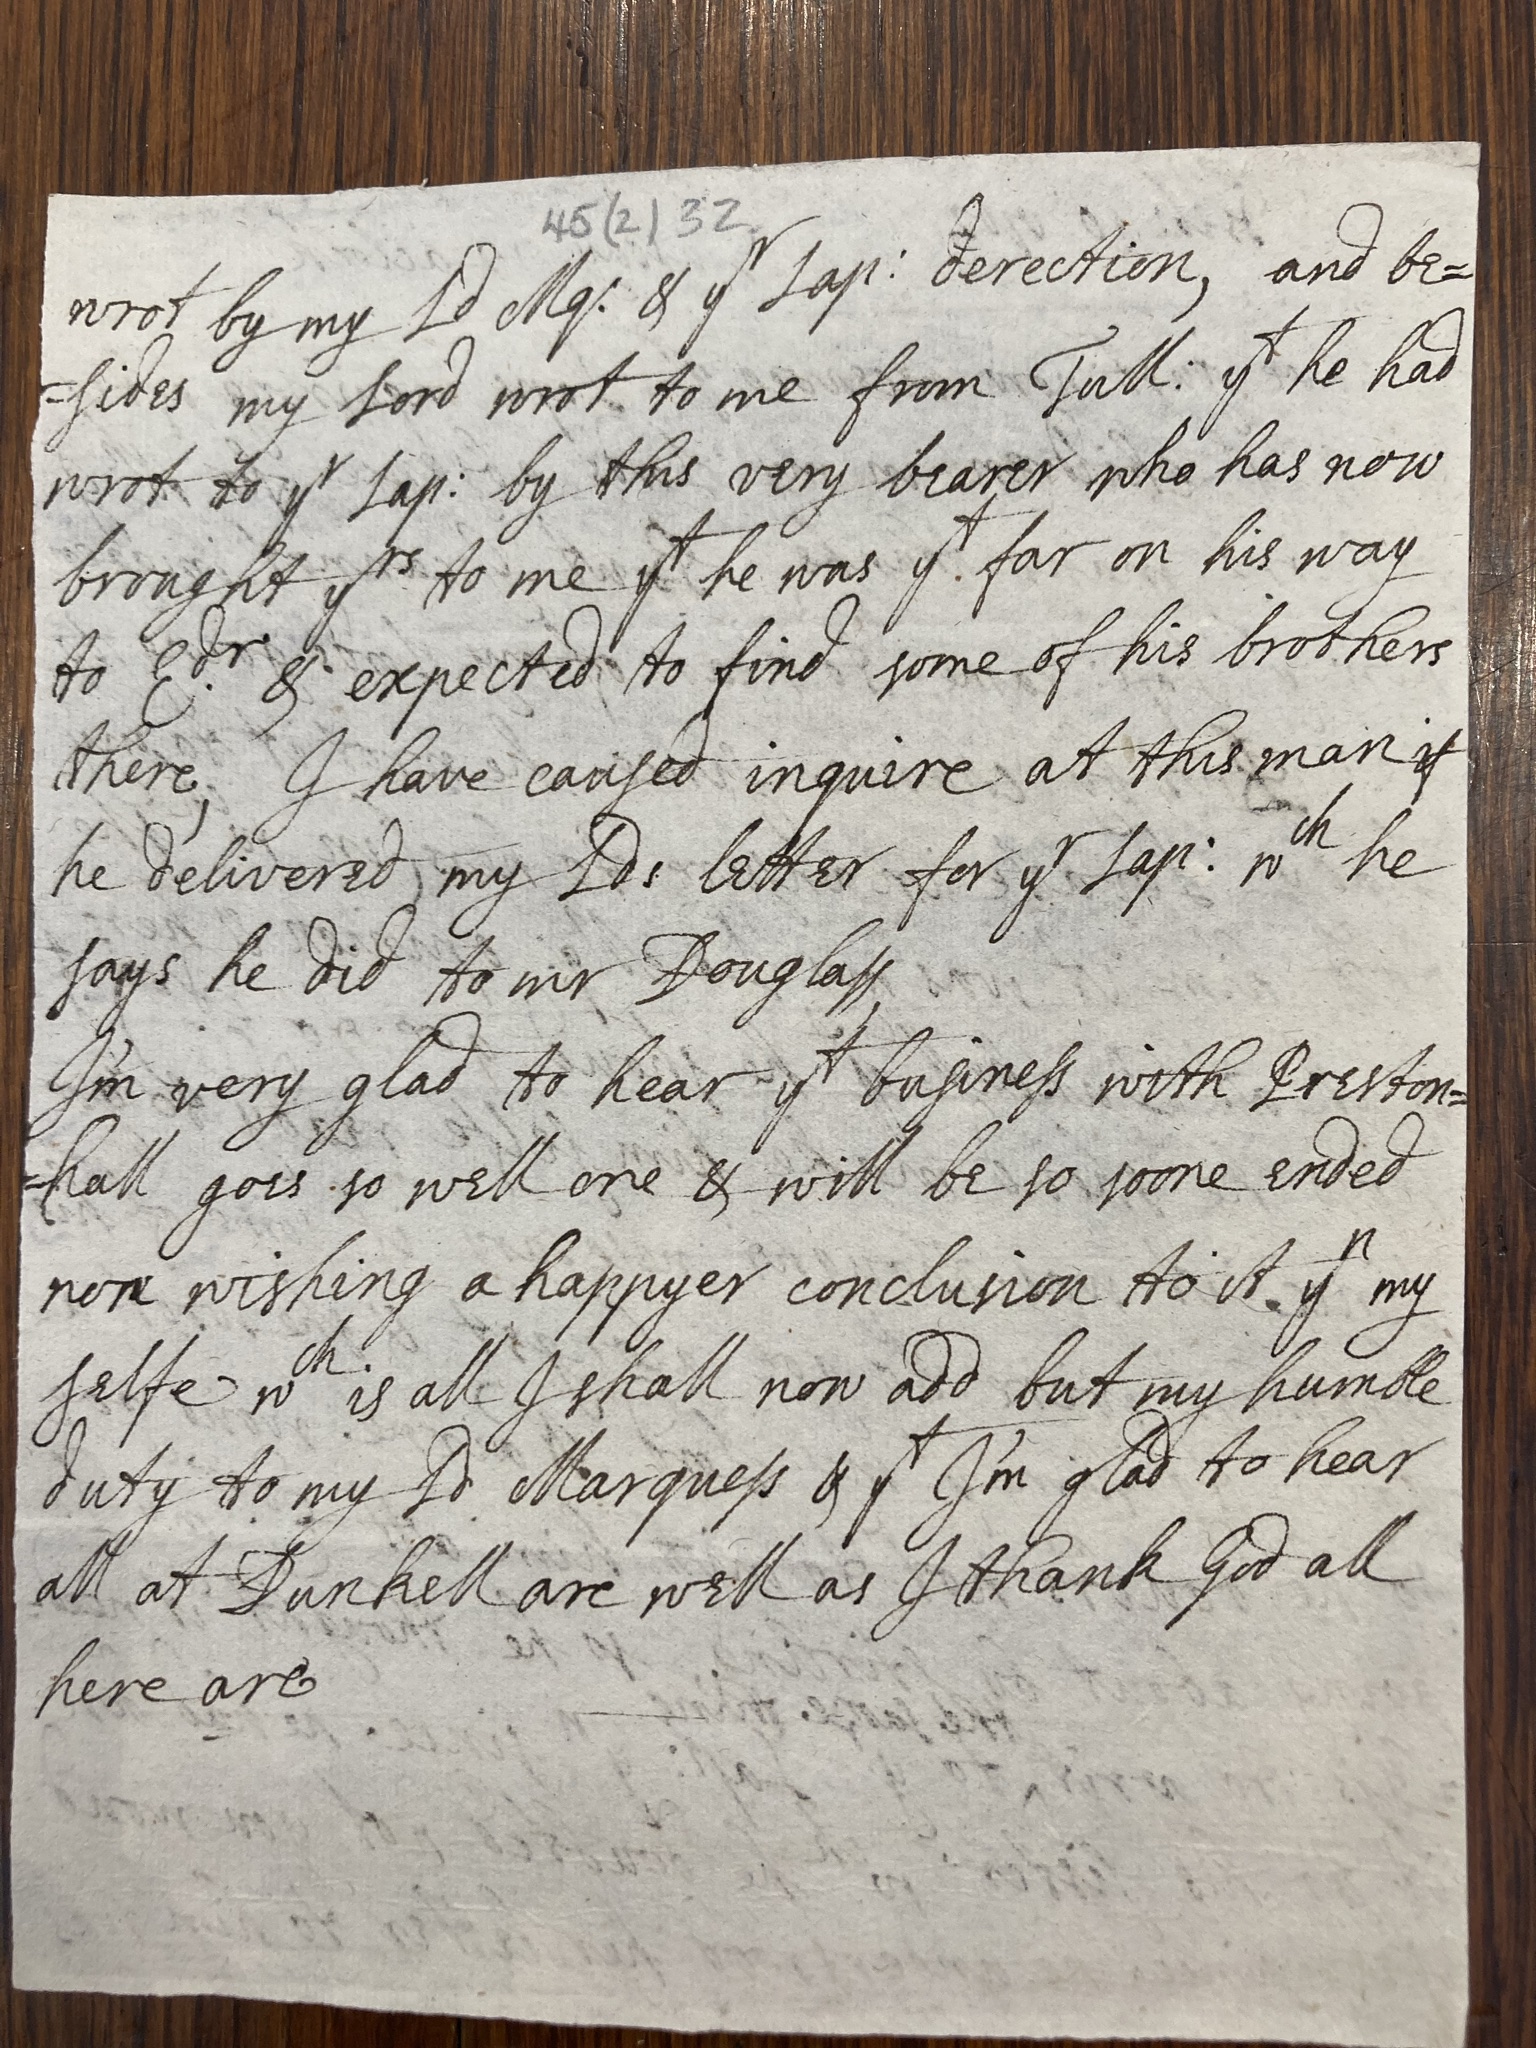 45(2)32
wrot by my Ld Mqs: & yr Lap: derection, and be=
=sides my Lord wrot to me from Tull: yt he had
wrot to yr Lap: by this very bearer who has now
brought yrs to me yt he was yt far on his way
to Edr & expected to find some of his brothers
there, I have caused inquire at this man if
he delivered my Lds letter for yr Lap: wch he
says he did to mr Douglass
I'm very glad to hear yt business with Preston=
=hall goes so well one & will be so soone ended
non wishing a happyer conclusion to it yn my
selfe wch is all I shall now add but my humble
duty to my Ld Marquess & yt I'm glad to hear
all at Dunkell are well as I thank God all
here are